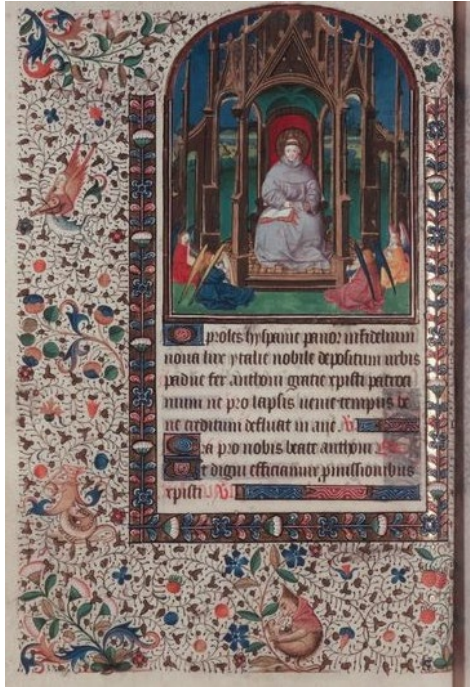 O proles hyspanie pavor infidelium
nova lux ytalie nobile depositum urbis
padue fer anthoni gratie xpisti patroci
nium ne pro lapsis venie tempus bre
ve creditum defluat in ane
Ora pro nobis beate anthoni
Ut digni efficiamur pmissionibus
xpisti